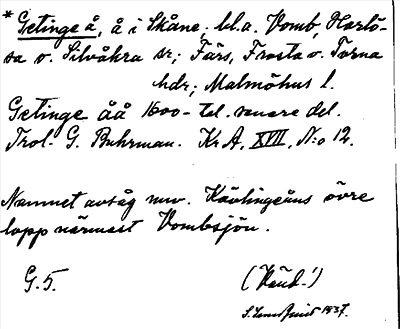 * Getinge å, å i Skåne, bl.a. Vomb, Harlö-
sa o. Silvåkra sr; Färs, Frosta o. Torna
hdr; Malmöhus l.
Getinge åå 1600-tal. senare del.
Trol. G. Buhrman. Kr A, XVII, N:o 12.
Namnet avsåg nuv. Kävlingeåns övre
lopp närmast Vombsjön.
G. 5.
1937.